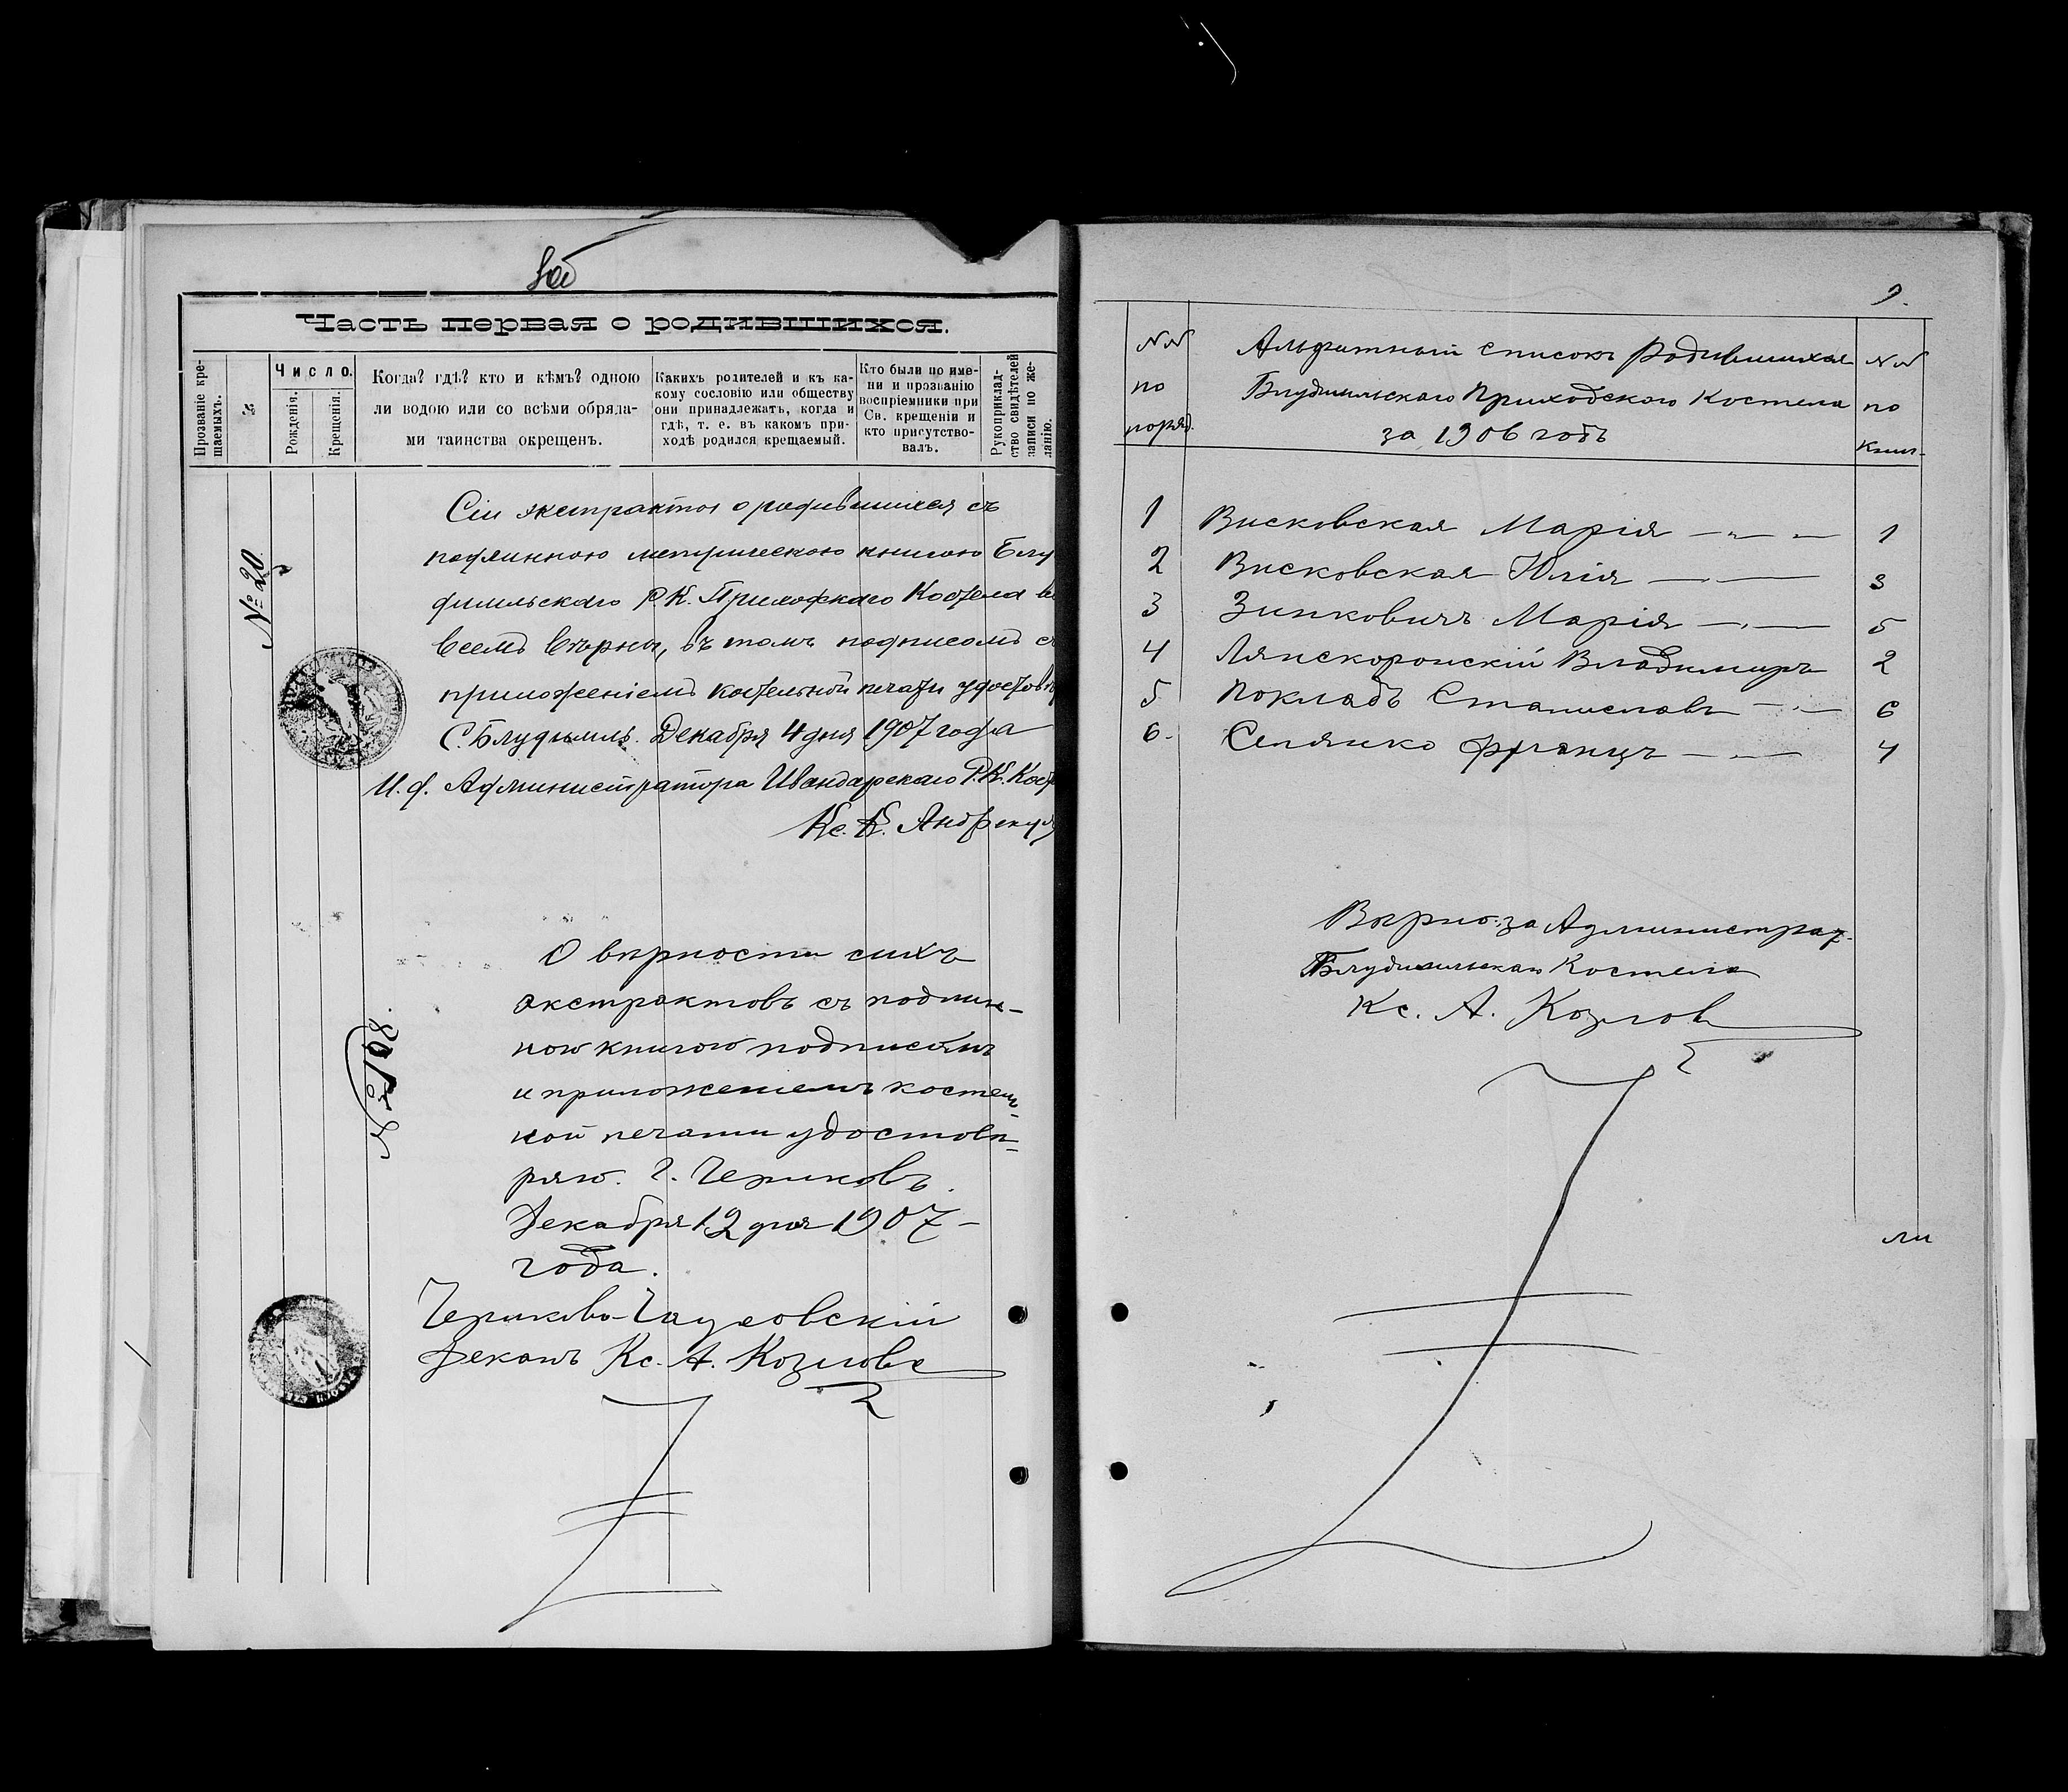 8об
Часть первая о родившихся.
Прозваніе кре-
щаемыхъ.
№
Число.
Рожденія.
Крещенія.
Когда? гдѣ? кто и кѣмъ? одною
ли водою или со всѣми обряда-
ми таинства окрещенъ.
Какихъ родителей и къ ка-
кому сословію или обществу
они принадлежатъ, когда и
гдѣ, т. е. въ какомъ при-
ходѣ родился крещаемый.
Кто были по име-
ни и прозванію
воспріемники при
Св. крещеніи и
кто присутство-
валъ.
Рукоприклад-
ство свидѣтелей
записи по же-
ланію.
№ 20
Сіи экстракты о родившихся съ
подлинною метрическою книгою Блу
димльскаго Р.К. Приходскаго Костела во
всемъ вѣрны, въ томъ подписомъ съ
приложеніемъ костельной печати удостовѣ
С. Блудимль. Декабря 4 дня 1907 года
И. д. Администратора Ивандарскаго Р.К. Кост
Кс. К.
№ 108.
О вѣрности сихъ
экстрактовъ съ подлин-
ною книгою подписомъ
и приложеніемъ костель-
ной печати удостовѣ-
ряю. г. Чериковъ.
Декабря 12 дня 1907-
года.
Чериково-Чаусовскій
Деканъ Кс. А. Козлов
9.
№№
по
поряд.
Альфитный списокъ Родившихся
Блудимльскаго Приходскаго Костела
за 1906 годъ
№№
по
книг.
1 Висковская Марія 1
2 Висковская Юлія 3
3 Зинковичъ Марія 5
4 Лянскоронскій Владимиръ 2
5 Покладъ Станиславъ 6
6. Сепянко Францъ 4
Вѣрно: за Администрат.
Блудимльскаго Костела
Кс. А. Козлов
ли